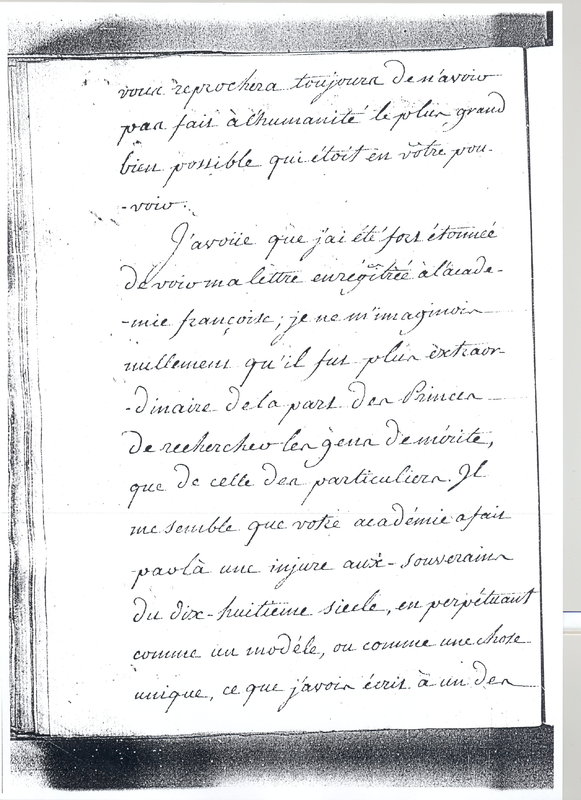 vous reprochera toujours de n'avoir
pas fait à l'humanité le plus grand
bien possible qui étoit en vôtre pou-
-voir.
J'avoüe que j'ai été fort étonnée
de voir ma lettre enrégîtrée à l'acade-
-mie françoise; je ne m'imaginois
nullement qu'il fut plus èxtraor-
-dinaire de la part des Princes
de rechercher les gens de mérite,
que de celle des particuliers. Il
me semble que votre académie a fait
par là une injure aux souverains
du dix-huitieme siecle, en perpétuant
comme un modéle, ou comme une chose
unique, ce que j'avois écrit à un des